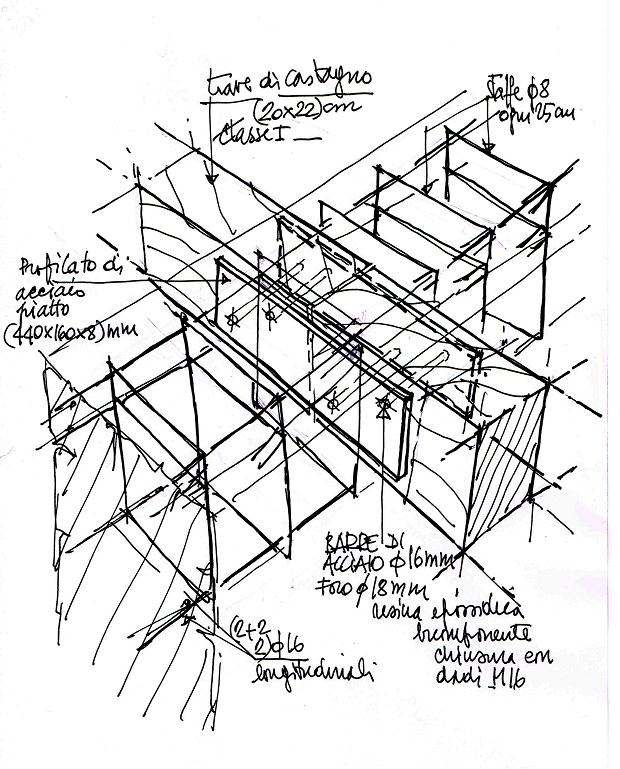 trave di castagno
(20x22)cm
classe I
staffe ϕ8
ogni 25cm
Profilato di
acciaio
piatto
(440x160x8)mm
BARRE DI
ACCIAIO ϕ16mm
Foro ϕ18mm
resina epossidica
bicomponente
chiusura con
dadi M16
(2+2
2)ϕ16
longitudinali